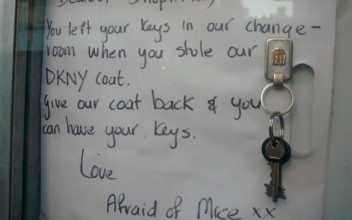 You left your keys in our change-
room when you stole our
DKNY coat.
Give our coat back & you
can have your keys.
Love
Afraid of Mice xx